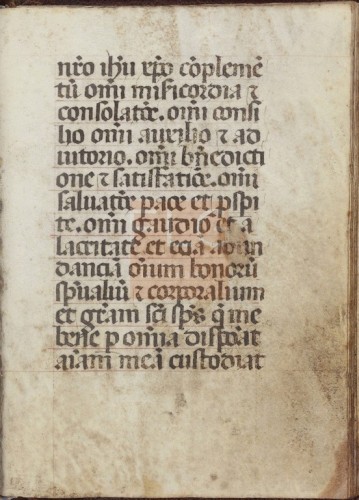 nr̃o ih̃u xp̃o cõplemẽ
tũ om̃i misicordia ⁊
consolatõe. om̃i consi
lio om̃i auxilio ⁊ ad
iutorio. om̃i bñedicti
one ⁊ satisfatiõe. om̃i
saluatõe pace et ꝓspi
te. om̃i gaudio et a
lacritate et ecia abun
danciã oĩum bonorũ
sp̃ualiũ ⁊ corporalium
et gr̃am sc̃i sp̃s q̃ me
bene p om̃ia disponat
aĩam meã custodiat